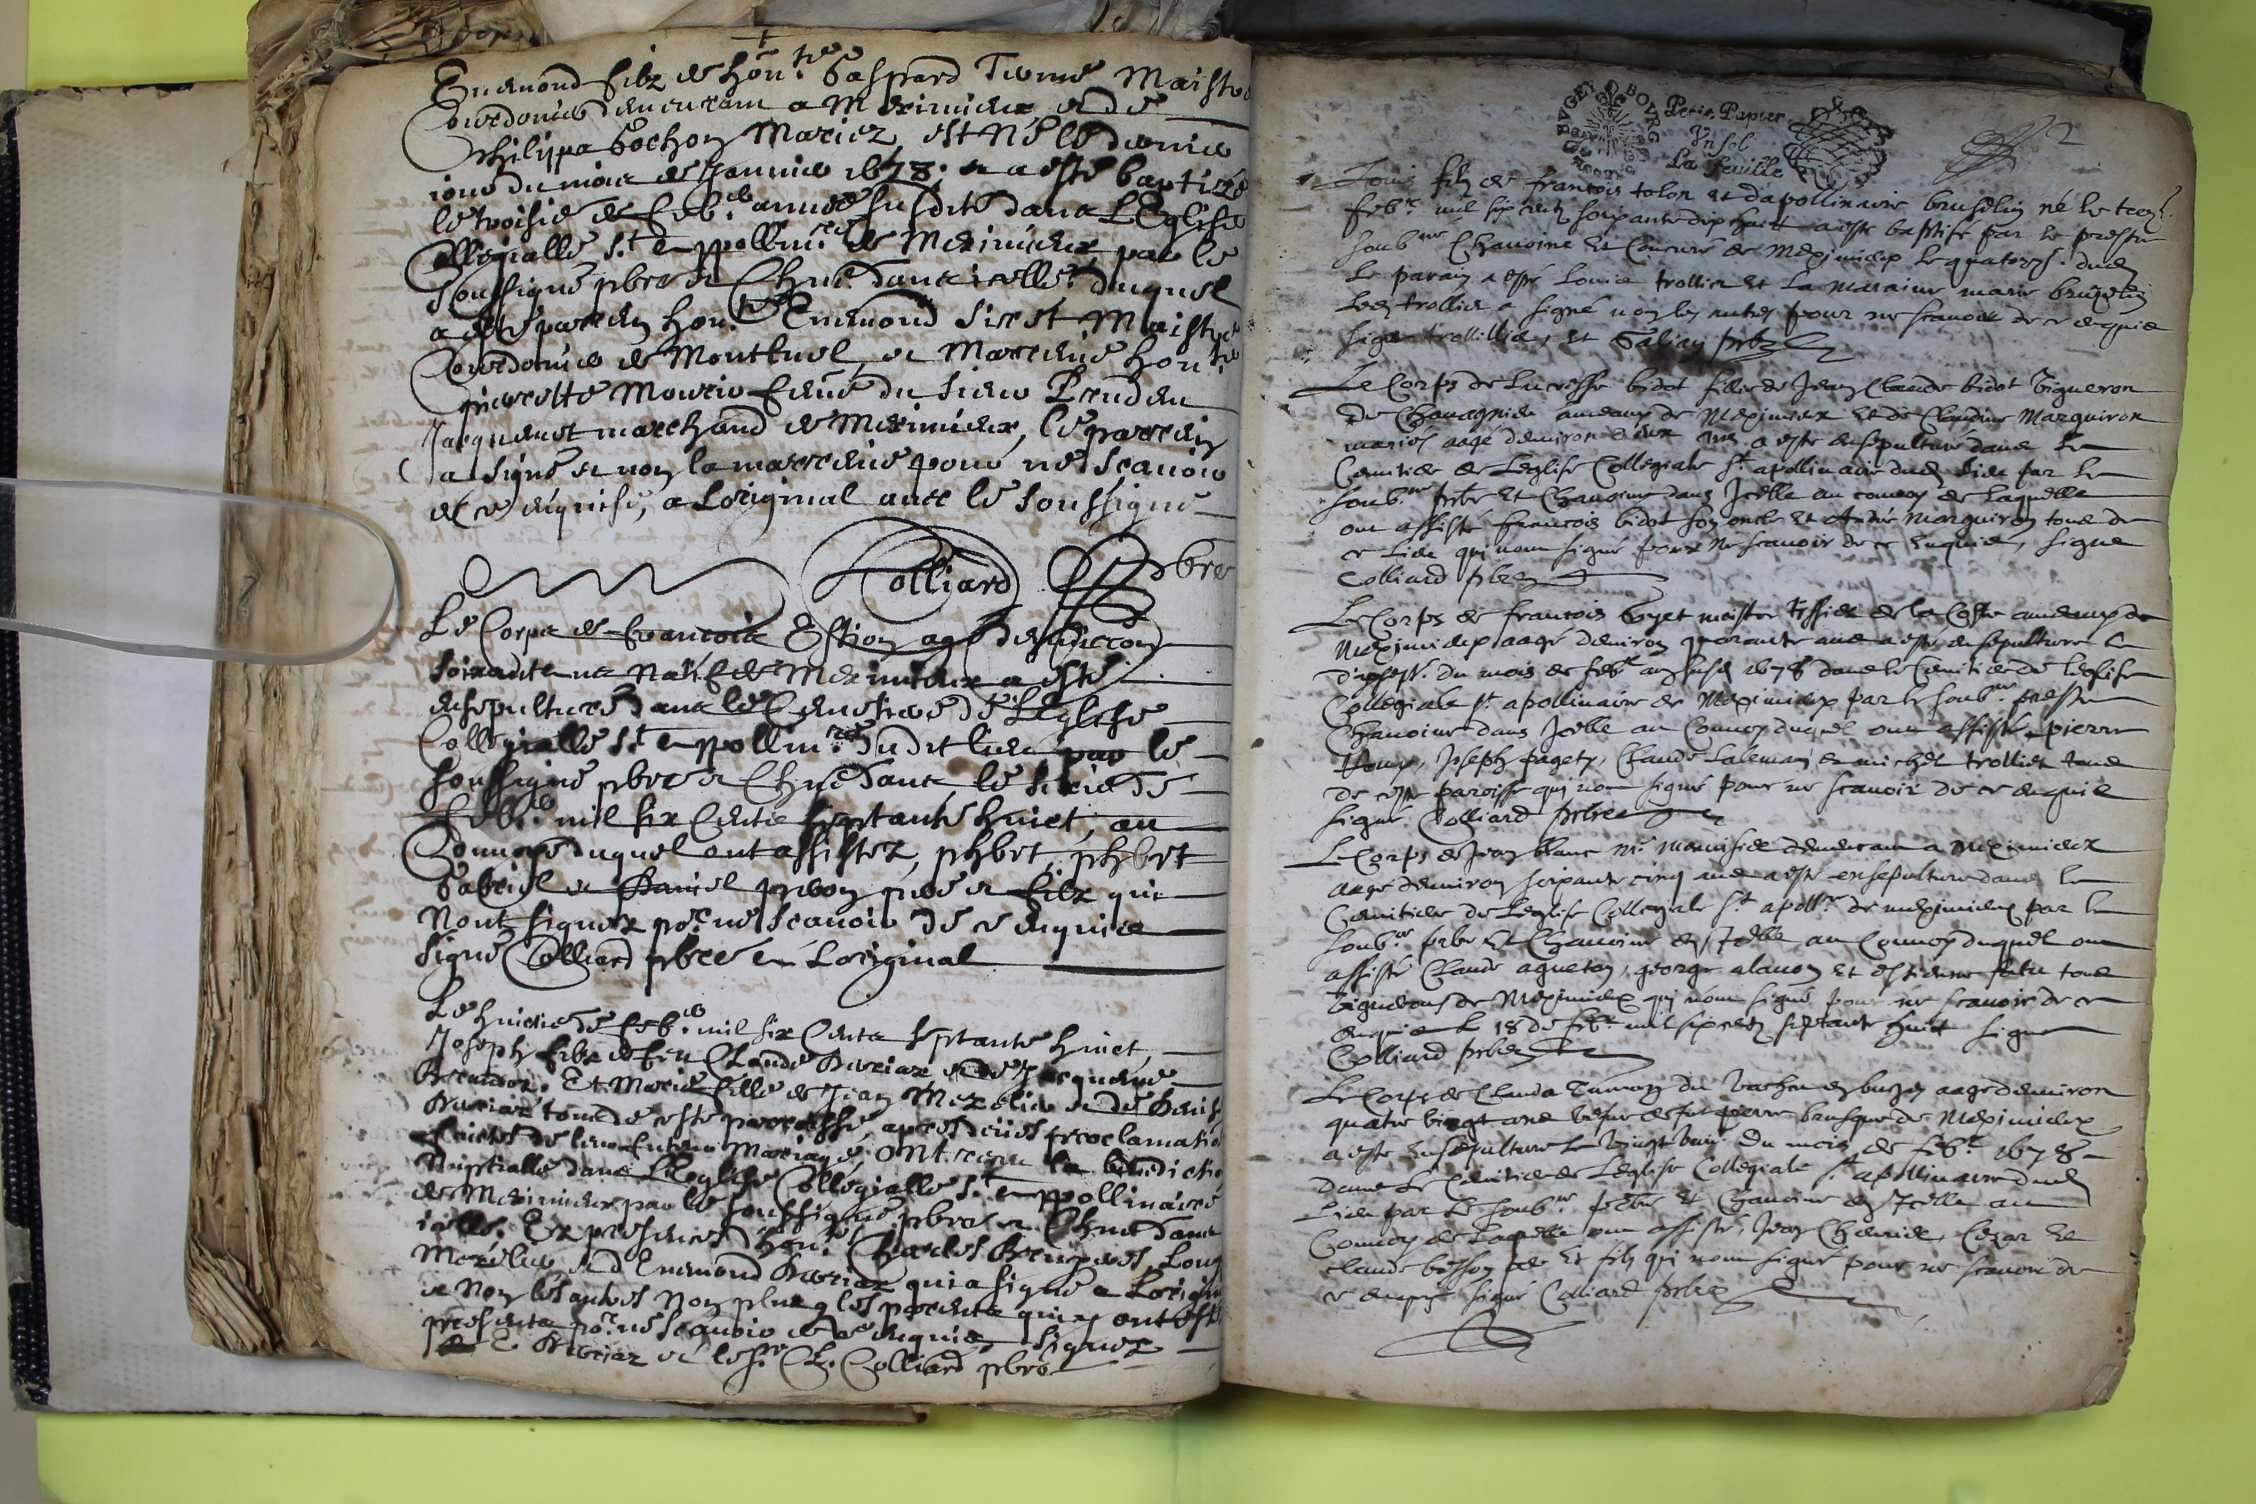 Enemond filz de hon.te Gaspard Tieme Maistre
Cordonie demeurant a Meximieux et de
Philippa Gochon Mariez est Né le dernie
iour du mois de Januie 1678. et a esté baptizé
le troisie de feb.e année susdite dans L'Eglise
Collegialle S.t Appollin.re de Meximieux par le
soussigné pbre et Chne dans icelle. duquel
a esté parrein hon.te Enemond Siret Maistre
Cordonie de Montluel, et Marreine hon.te
Pierrette Mourie femme du sieur
Jacquemet marchand de Meximieux, le parrein
a signé et non la marreine pour ne scauoir
de ce enquise, a Loriginal auec le soussigné
Colliard pbre
Le Corps de francois Estion agé denuiron
soixante ans Natif de Meximieux a esté
ensepulturé dans le Cimetiere de L'Eglise
Collegialle S.t Appollin.re dudit lieu par le
soussigné pbre et Chne dans le
feb.e mil six Cents septante huict, au
Conuoye duquel ont assistez, phbrt, phbrt
Gabriel et Daniel preuon pere et filz qui
Nont signez po.r ne scauoir de ce enquise
signé Colliard pbre en Loriginal
Le huictie de feb.e mil six Cents septante huict,
Joseph filz de feu Claude et de Jacquema
Et Marie fille de Jean Mezelie et de Denise
tous de ceste parroisse, apres deues proclamatio
faictes de leur futeur Mariage ont receu la benedictio
Nuptialle dans L'Eglise Collegialle S.t Appollinaire
de Meximieux par le soussigné pbre et Chne dans
icelle. En presence d'hon.te Charles
Mezelie et d'Enemond qui a signé a Lorigin
et Non les autres Non plus q les parents qui y ont esté
presents po.r ne scauoir de ce enquis signez
E. et le s.r Cl. Colliard pbre
BOVRG BVGEY
Petit Papier
Insol
La feuille
2
Louis filz de francois tolon et d'apollinaire bruselin né le trez.
feb.r mil six cent soixante dix huit a este baptise par le prestre
soub.ne Chanoine et Concuré de Meximieux le quatorz.e dud
le parain a esté Louis trollier et la maraine marie bruzelin
led trollier a signé non les autres pour ne scauoir de ce enquis
signe trollillier, et Galien pbre
Le Corps de Lucresse bidot fille de Jean Claude bidot Vigneron
de Chauagnieu ameaux de Meximieux et de Claudine Marguiron
mariés aagé denuiron deux ans a este ensepulturé dans le
Cemitiere de Leglise Collegiale S.t apollinaire dud lieu par le
soub.ne pbre et Chanoine dans Icelle au conuoy de laquelle
ont assisté francois bidot son oncle et André Marguiron tous de
ce lieu qui nont signé pour ne scauoir de ce enquis, signe
Colliard pbre
Le Corps de francois boyet maistre tissier de la Coste ameaux de
Meximieux aagé denuiron quarante ans a esté ensepulturé le
dixsept.e du mois de feb.r an susd 1678 dans le Cemitiere de Leglise
Collegiale S.t apollinaire de Meximieux par le soub.ne prestre
Chanoine dans Icelle au Conuoy duquel ont assisté, pierre
Joseph pagety, Claude Laleman et michel trollier tous
de ceste paroisse qui nont signé pour ne scauoir de ce enquis
signé Colliard pbre
Le Corps de Jean blanc m.e menuisier demeurant a Meximieux
aagé denuiron soixante cinq ans a esté ensepulturé dans le
Cemitiere de Leglise Collegiale S.t apoll.re de meximieux par le
soub.ne pbre et Chanoine en Icelle au Conuoy duquel ont
assisté Claude agueton, george alanon et estienne tous
Vignerons de Meximieux qui nont signé pour ne scauoir de ce
enquis le 18 de feb.r mil six cent septante huit signe
Colliard pbre
Le Corps de Clauda du en bugey aagé denuiron
quatre vingt ans vefue de fut pierre brusque de Meximieux
a este ensepulturé le vingt un du mois de feb.r 1678
dans le Cemitiere de Leglise Collegiale S.t apollinaire dud
Lieu par le soub.ne pbre et Chanoine en Icelle au
Conuoy de laquelle ont assisté, Jean Cesar et
Claude besson pere et filz qui nont signé pour ne scauoir de
ce enquis. signé Colliard pbre